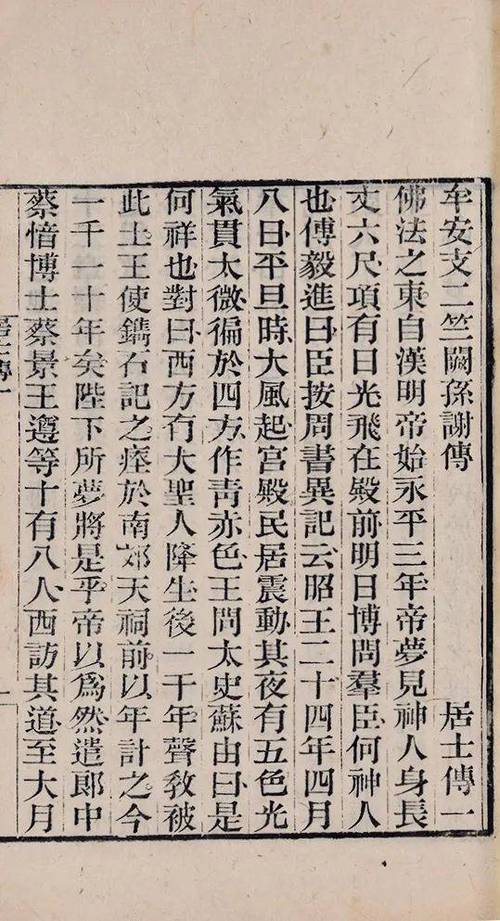 牟安支二竺闕孫謝傳 居士傳一
佛法之東自漢明帝始永平三年帝夢見神人身長
丈六尺項有日光飛在殿前明日博問羣臣何神人
也傅毅進曰臣按周書異記云昭王二十四年四月
八日平旦時大風起宮殿民居震動其夜有五色光
氣貫太微徧於四方作靑赤色王問太史蘇由曰是
何祥也對曰西方有大聖人降生後一千年聲敎被
此土王使鐫石記之瘞於南郊天祠前以年計之今
一千一十年矣陛下所夢將是乎帝以爲然遣郞中
蔡愔博士蔡景王遵等十有八人西訪其道至大月
居士傳一
一